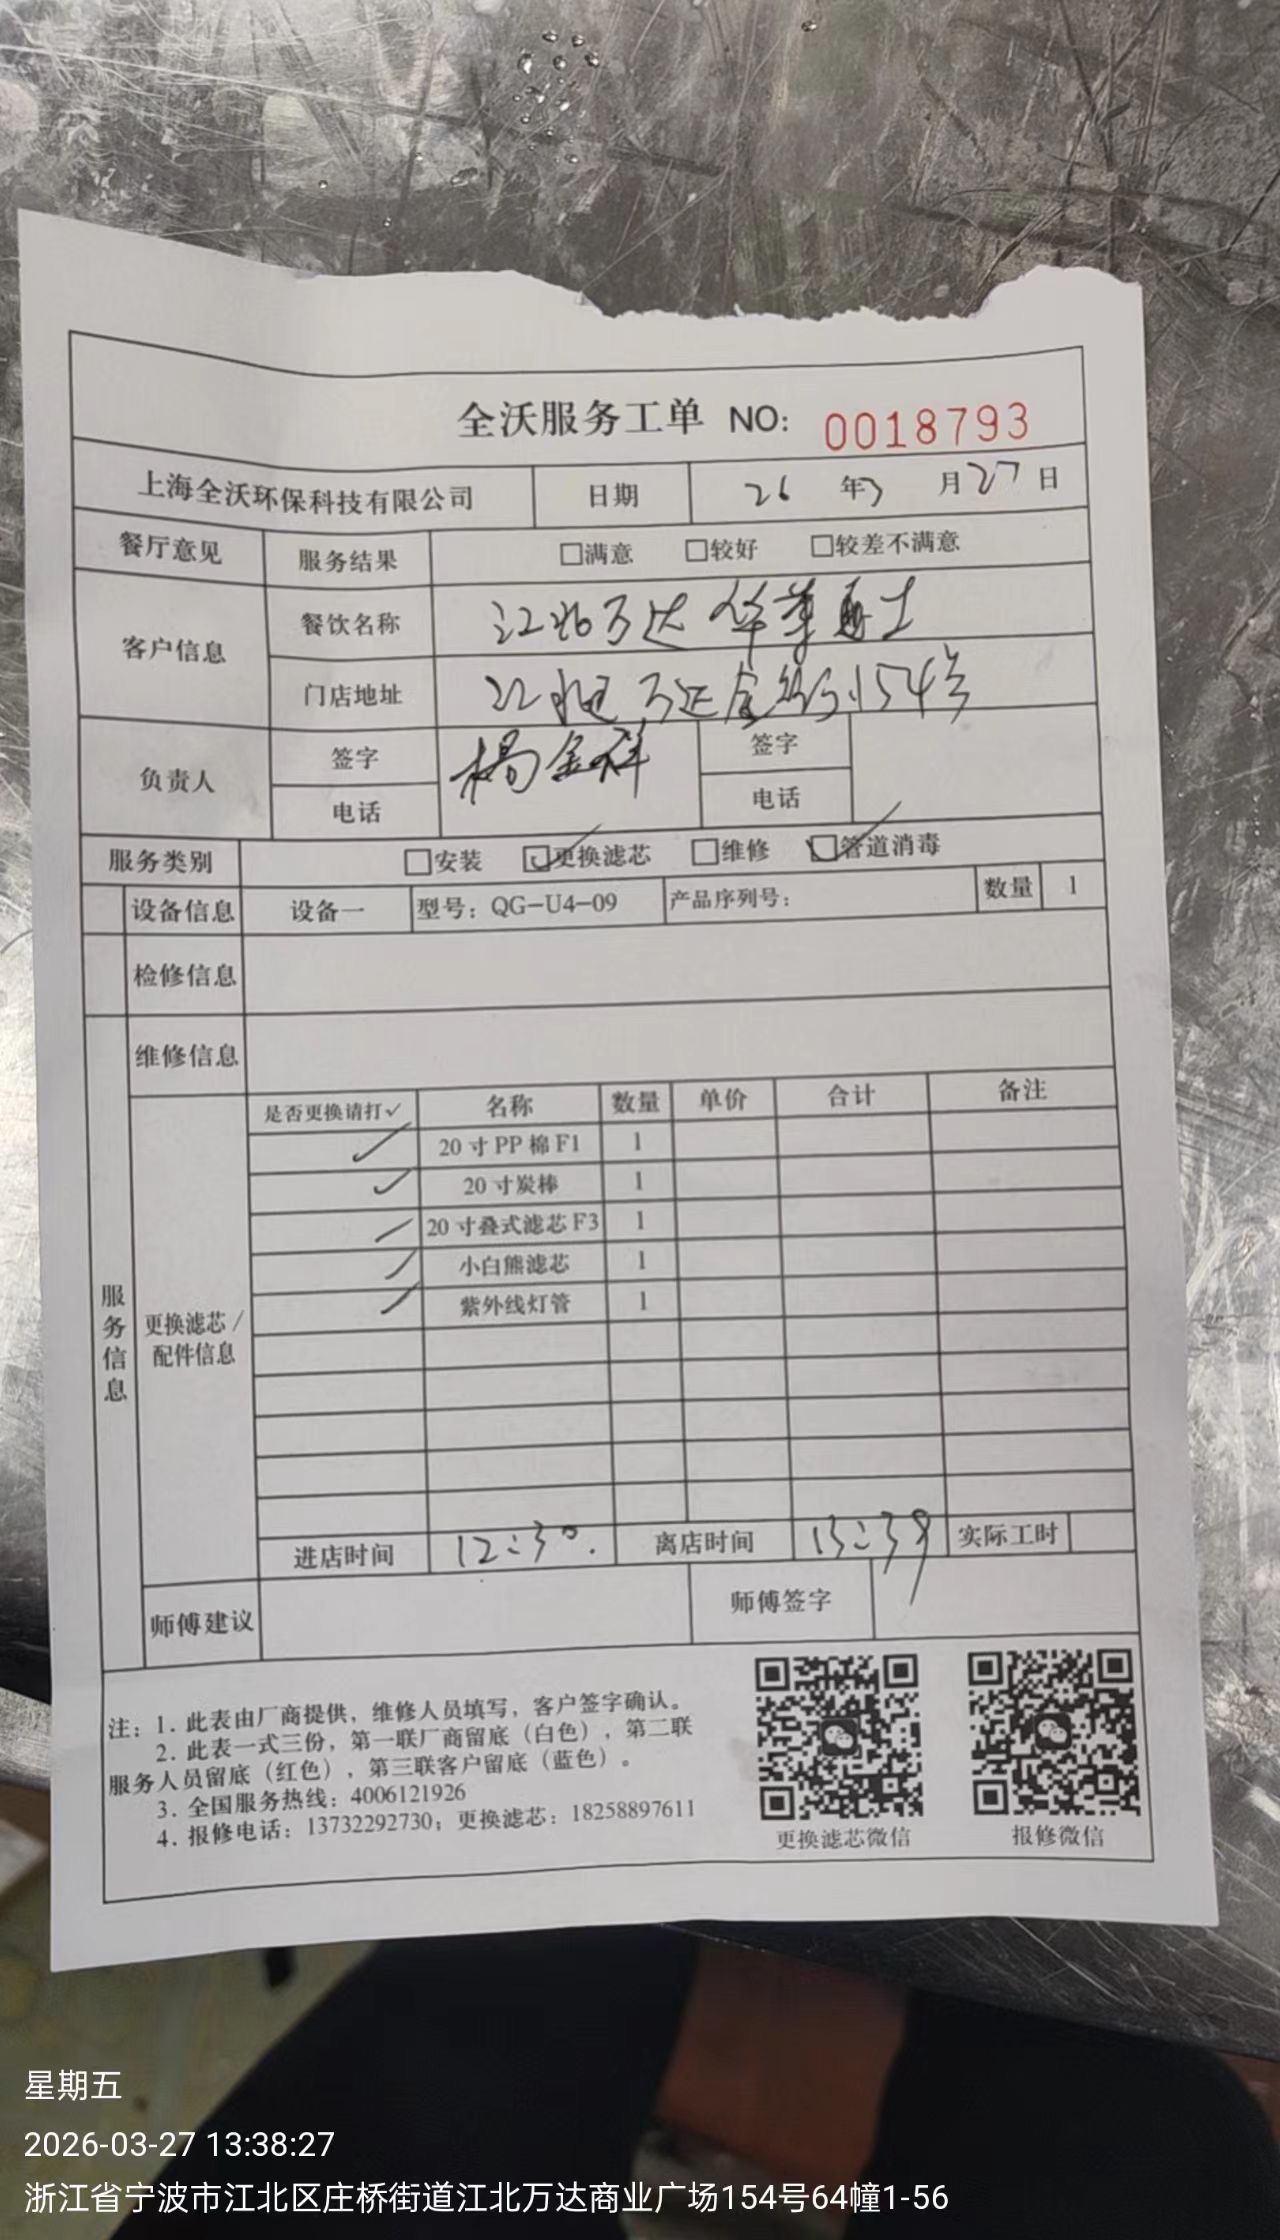 全沃服务工单 NO: 0018793
上海全沃环保科技有限公司 日期 26 年3 月27日
餐厅意见 服务结果 □满意 □较好 □较差不满意
客户信息
餐饮名称 江北万达 华莱士
门店地址 江北万达金街154号
负责人
签字 杨金祥 签字
电话 电话
服务类别 □安装 ☑更换滤芯 □维修 ☑管道消毒
设备信息 设备一 型号：QG-U4-09 产品序列号： 数量 1
检修信息
维修信息
服务信息
更换滤芯/
配件信息
是否更换请打✓ 名称 数量 单价 合计 备注
✓ 20寸PP棉F1 1
✓ 20寸炭棒 1
✓ 20寸叠式滤芯F3 1
✓ 小白熊滤芯 1
✓ 紫外线灯管 1
进店时间 12:30. 离店时间 13:39 实际工时
师傅建议 师傅签字
注：1. 此表由厂商提供，维修人员填写，客户签字确认。
2. 此表一式三份，第一联厂商留底（白色），第二联
服务人员留底（红色），第三联客户留底（蓝色）。
3. 全国服务热线：4006121926
4. 报修电话：13732292730；更换滤芯：18258897611
更换滤芯微信 报修微信
星期五
2026-03-27 13:38:27
浙江省宁波市江北区庄桥街道江北万达商业广场154号64幢1-56